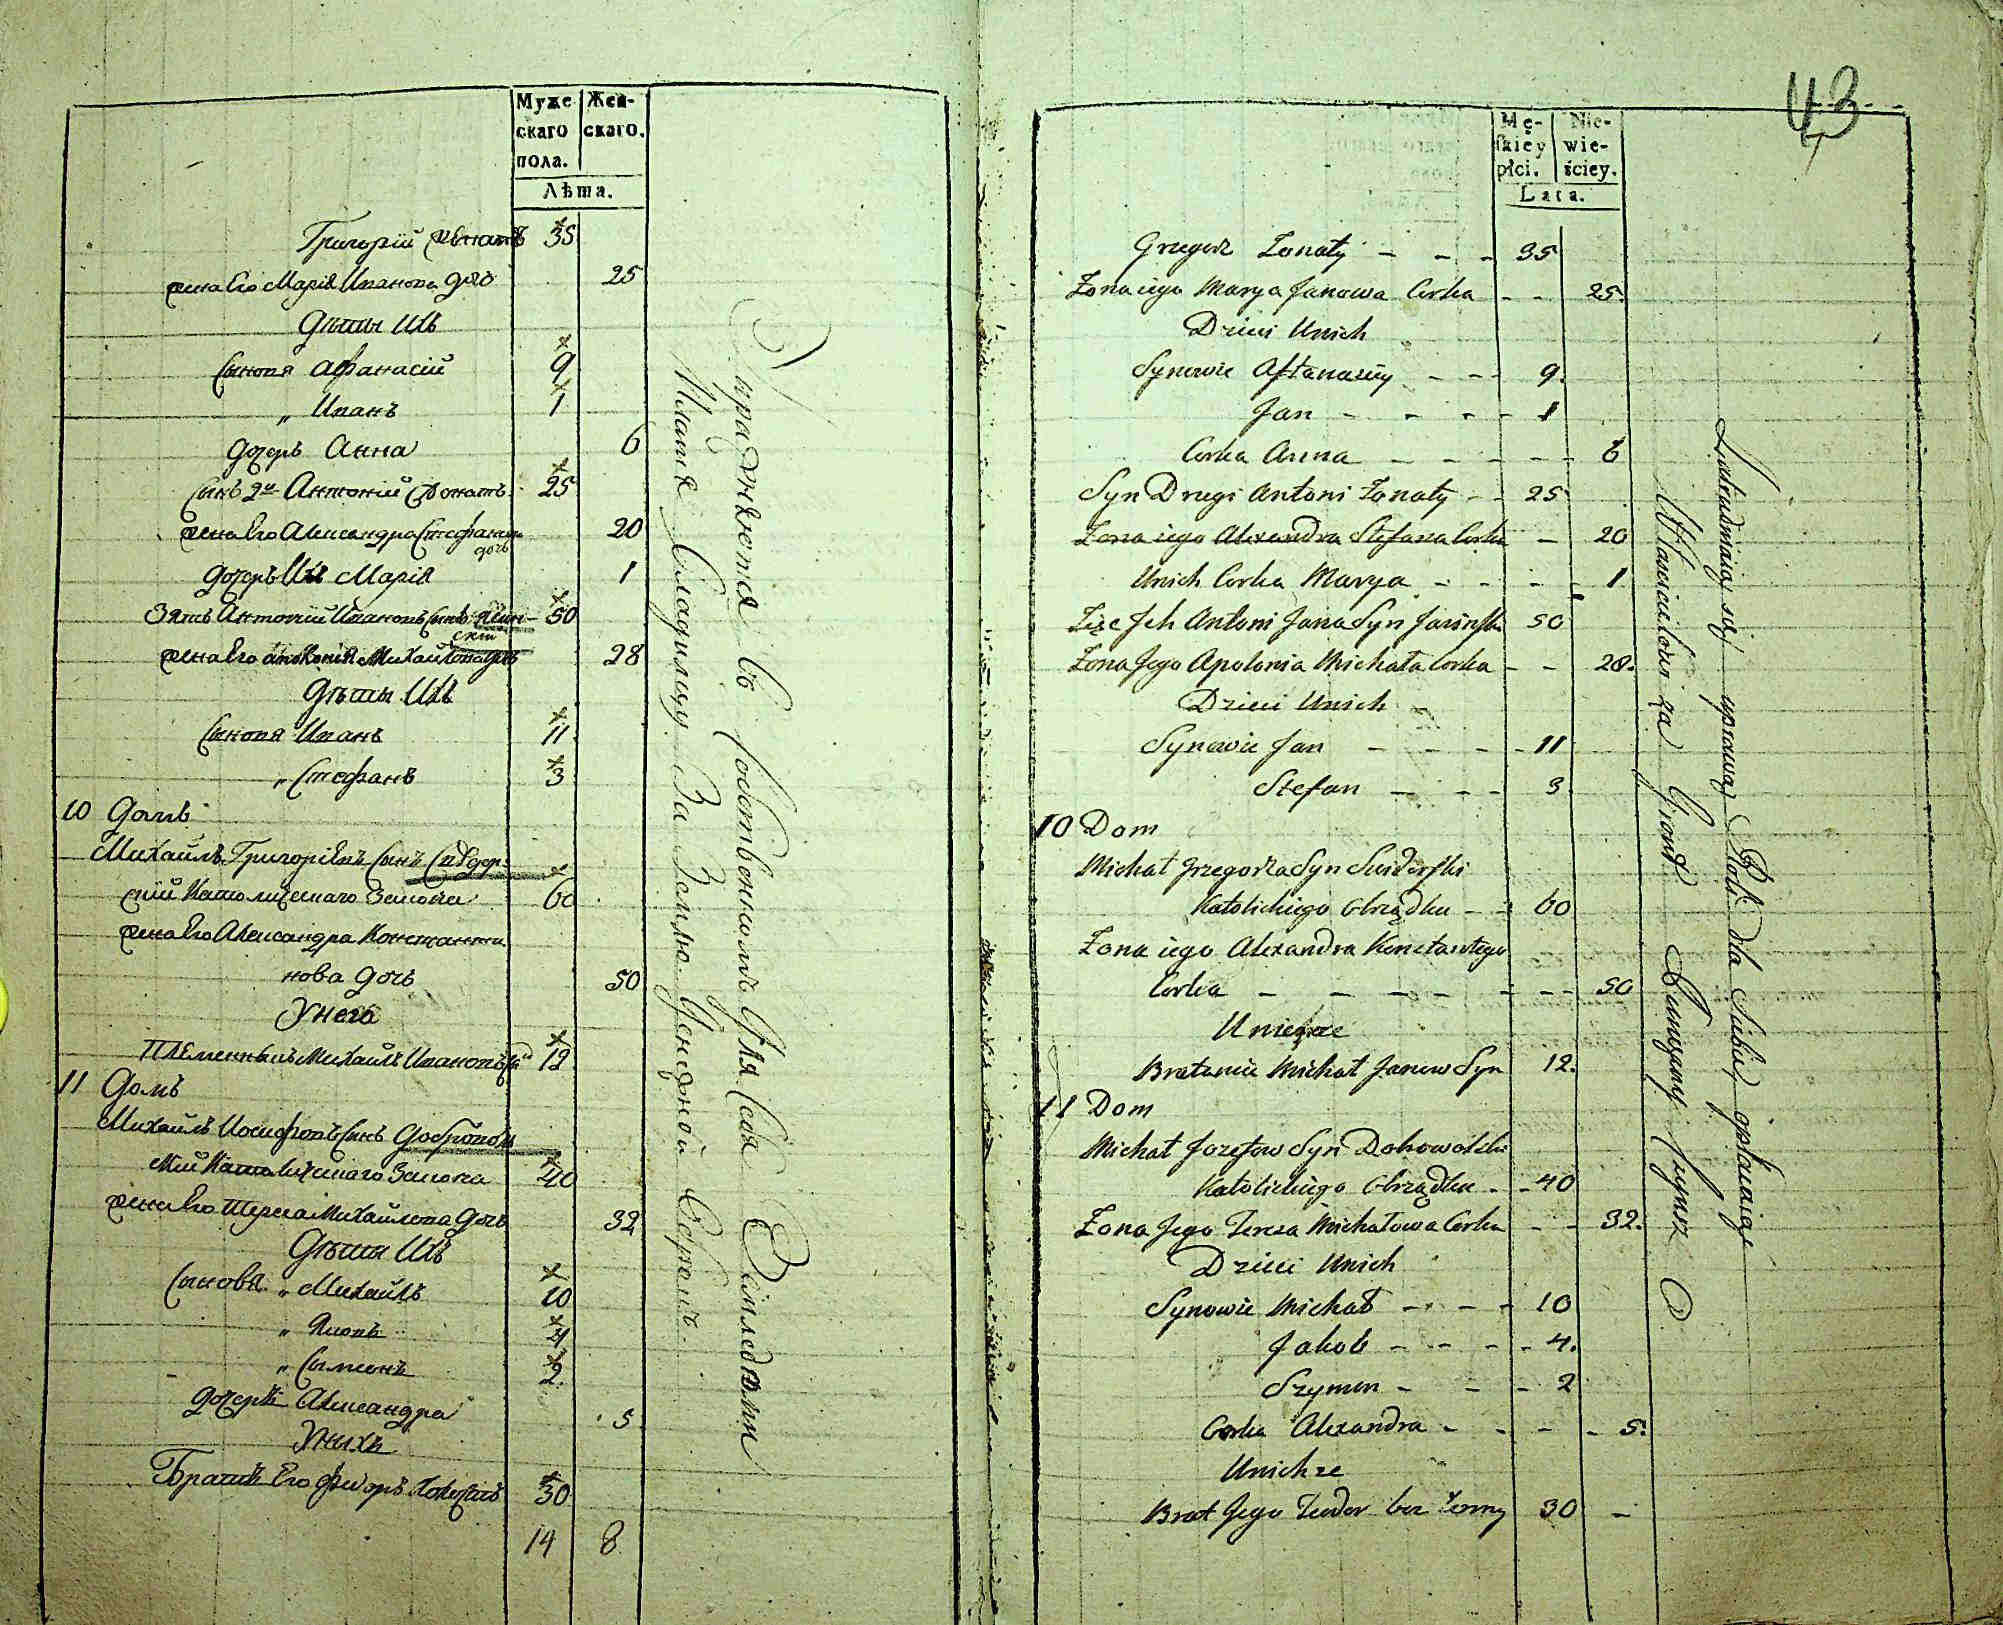 Муже
скаго
пола.
Жен-
скаго.
Лѣта.
Григорій Женатъ 35
жена Его Марія Иванова дочь 25
Дѣти Ихъ
Сыновя Афанасій 9
„ Иванъ 1
Дочерь Анна 6
Сынъ 2й Антоній Женатъ 25
жена Его Александра Стефанова дочь 20
Дочерь Ихъ Марія 1
Зять Антоній Ивановъ Сынъ 50
жена Его Михайлова дочь 28
Дѣти Ихъ
Сыновя Иванъ 11
„ Стефанъ 3
10 Домъ
Михаилъ Григоріевъ Сынъ Свидер-
скій Католическаго Закона 60
жена Его Александра Константи
нова Дочь 50
У него
Племенникъ Михаилъ Ивановъ 12
11 Домъ
Михаилъ Иосифовъ Сынъ Доброволь
скій Католическаго Закона 40
жена Его Тереса Михайлова Дочь 32
Дѣти Ихъ
Сыновя „ Михаилъ 10
„ Яковъ 4
„ Сымонъ 2
Дочеръ Александра 5
У нихъ
Братъ Его Фиодоръ Холостъ 30
14 8
Упражняются въ собственномъ для себя Земледѣліи
Платя Владѣльцу За Землю Денежной Оброкъ.
43
Mę-
ſkiey
płci.
Nie-
wie-
ściey.
Lata.
Grzegorz Żonaty - - - 35
Żona iego Marya Janowa Corka - - 25.
Dzieci Unich
Synowie Aftanaziy - - - 9.
Jan - - - - 1
Corka Anna - - - - - 6
Syn Drugi Antoni Żonaty - - 25
Żona iego Alexandra Stefana Corka - 20
Unich Corka Marya - - - - 1
Zięc Jch Antoni Jana Syn Jasinſki 50
Żona Jego Apolonia Michała Corka - - 28.
Dzieci Unich
Synowie Jan - - - - 11
Stefan - - - 3
10 Dom
Michał Grzegorza Syn Swiderſki
Katolickiego Obrządku - - 60
Żona iego Alexandra Konstantego
Corka - - - - - - - 50
Uniegoze
Bratanic Michał Janow Syn 12.
11 Dom
Michał Jozefow Syn Dobrowolski
Katolickiego Obrządku - - 40
Żona Jego Teresa Michałowa Corka - - 32.
Dzieci Unich
Synowie Michał - - - - 10
Jakob - - - - 4.
Szymon - - - 2
Corka Alexandra - - - - 5.
Unichze
Brat Jego Teodor bez żonny 30 -
Zatrudniaią się uprawą Roli dla Siebie, opłacaiąc
Właścicielowi za Gront Pieniężny Czynsz